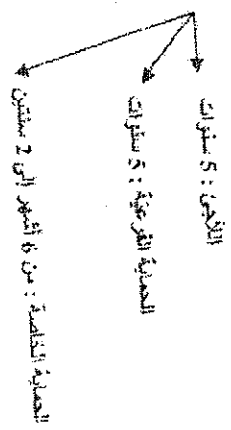 اللاجئ : 5 سنوات
الحماية الفرعية : 5 سنوات
الحماية الخاصة : من 6 أشهر الى 2 سنتين